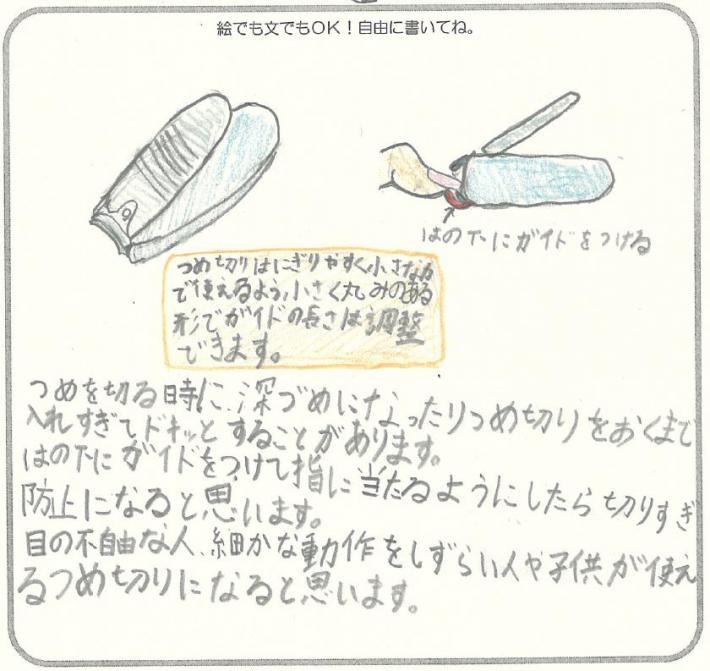 絵でも文でもOK！自由に書いてね。
はの下にガイドをつける
つめ切りはにぎりやすく小さな力
で使えるよう、小さく丸みのある
形でガイドの長さは調整
できます。
つめを切る時に、深づめになったりつめ切りをおくまで
入れすぎてドキッとすることがあります。
はの下にガイドをつけて指に当たるようにしたら切りすぎ
防止になると思います。
目の不自由な人、細かな動作をしずらい人や子供が使え
るつめ切りになると思います。